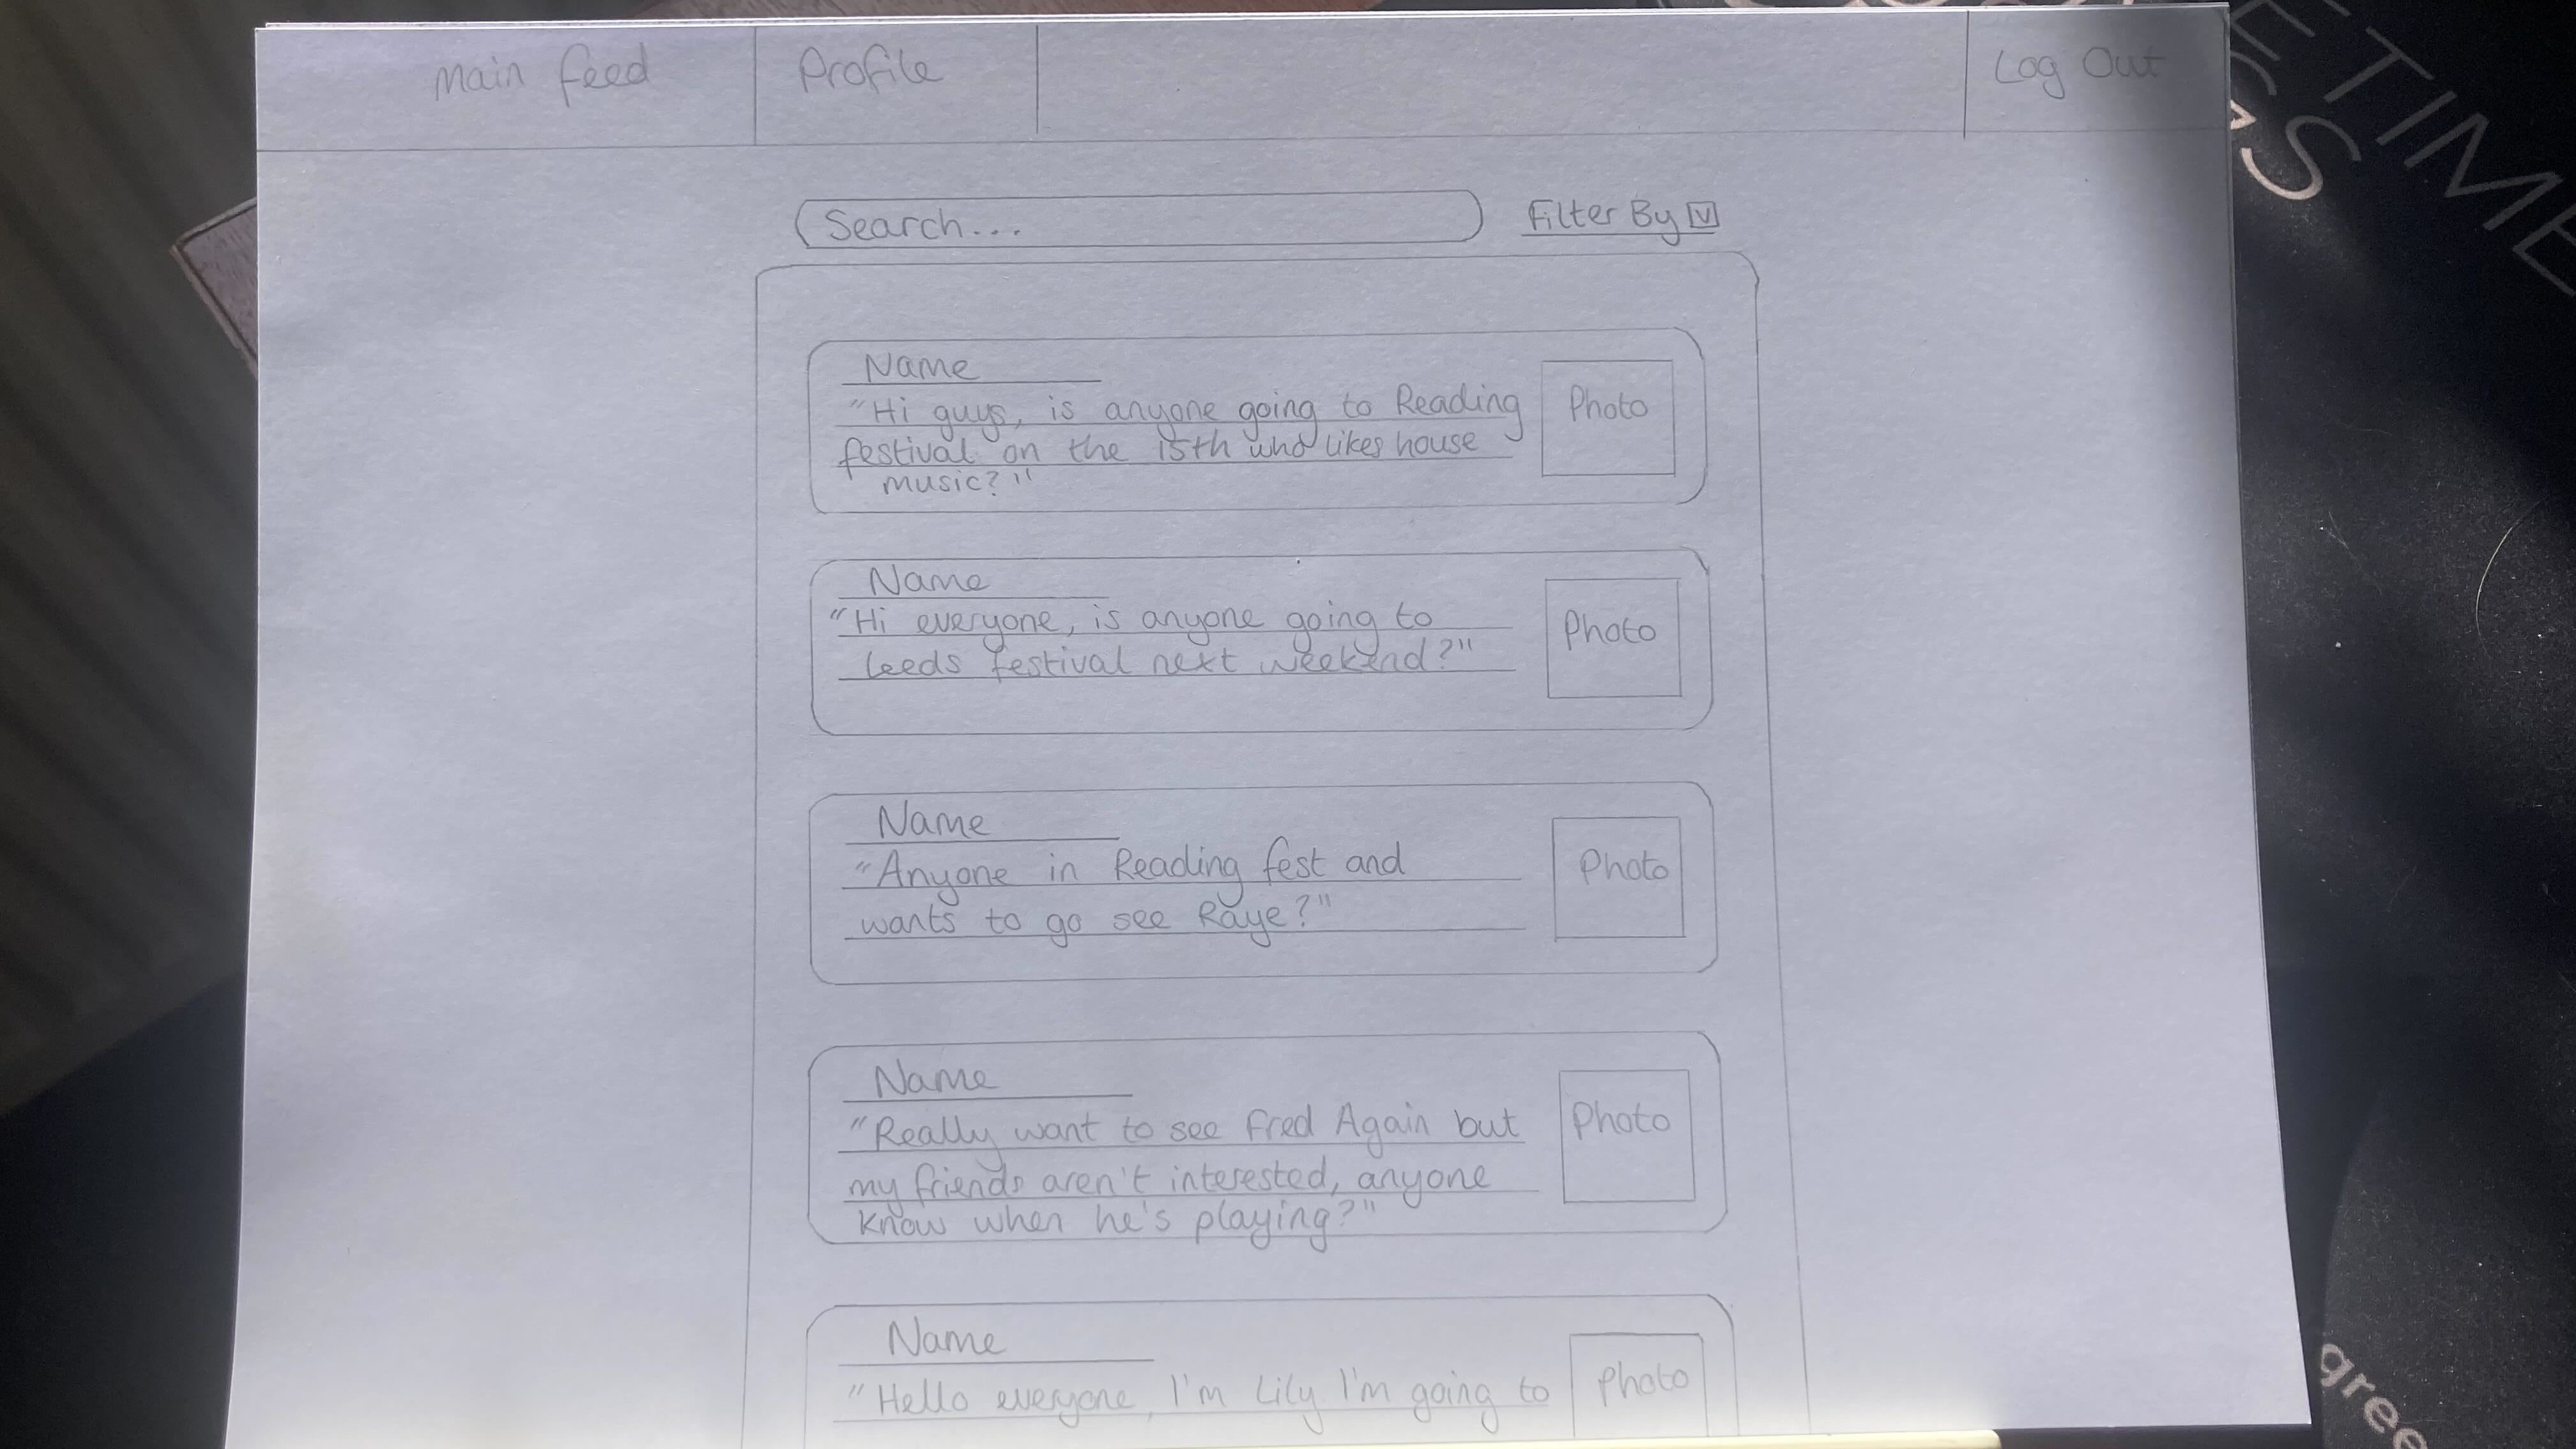 Main feed
Profile
Log Out
Search...
Filter By V
Name
"Hi guys, is anyone going to Reading
festival on the 15th who likes house
music?"
Photo
Name
"Hi everyone, is anyone going to
Leeds festival next weekend?"
Photo
Name
"Anyone in Reading fest and
wants to go see Raye?"
Photo
Name
"Really want to see Fred Again but
my friends aren't interested, anyone
know when he's playing?"
Photo
Name
"Hello everyone, I'm Lily I'm going to
Photo
ETIME
AS
gree